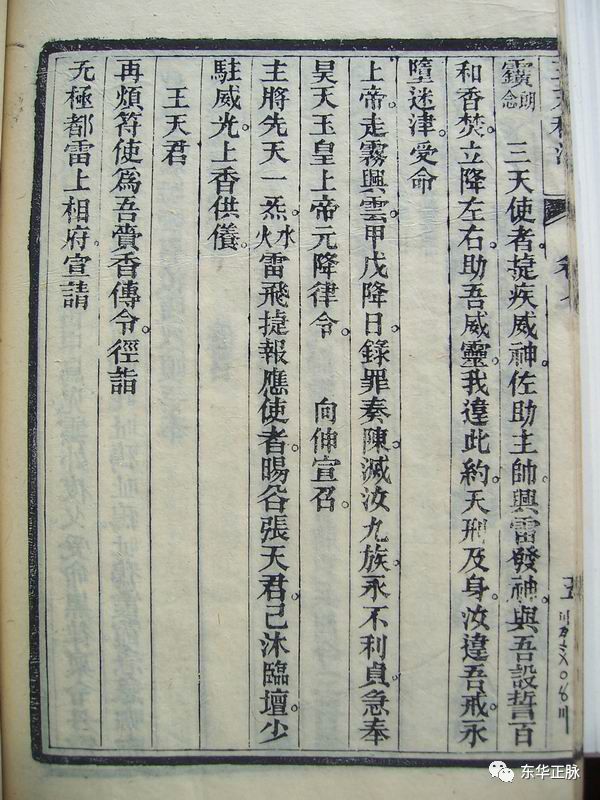 朗念 三天使者㨗疾威神。佐助主帥興雷發神。與吾設誓百
和香焚。立降左右。助吾威靈。我違此約。天刑及身。汝違吾戒永
墮迷津。受命
上帝。走霧興雲。甲戊降日。錄罪奏陳。滅汝九族。永不利貞。急奉
昊天玉皇上帝元降律令。 向伸宣召。
主將先天一炁。火水雷飛㨗報應使者。暘谷張天君。已沐臨壇。少
駐威光。上香供儀。
王天君
再煩符使爲吾賫香傳令。徑詣
无極都雷上相府。宣請
五
东华正脉